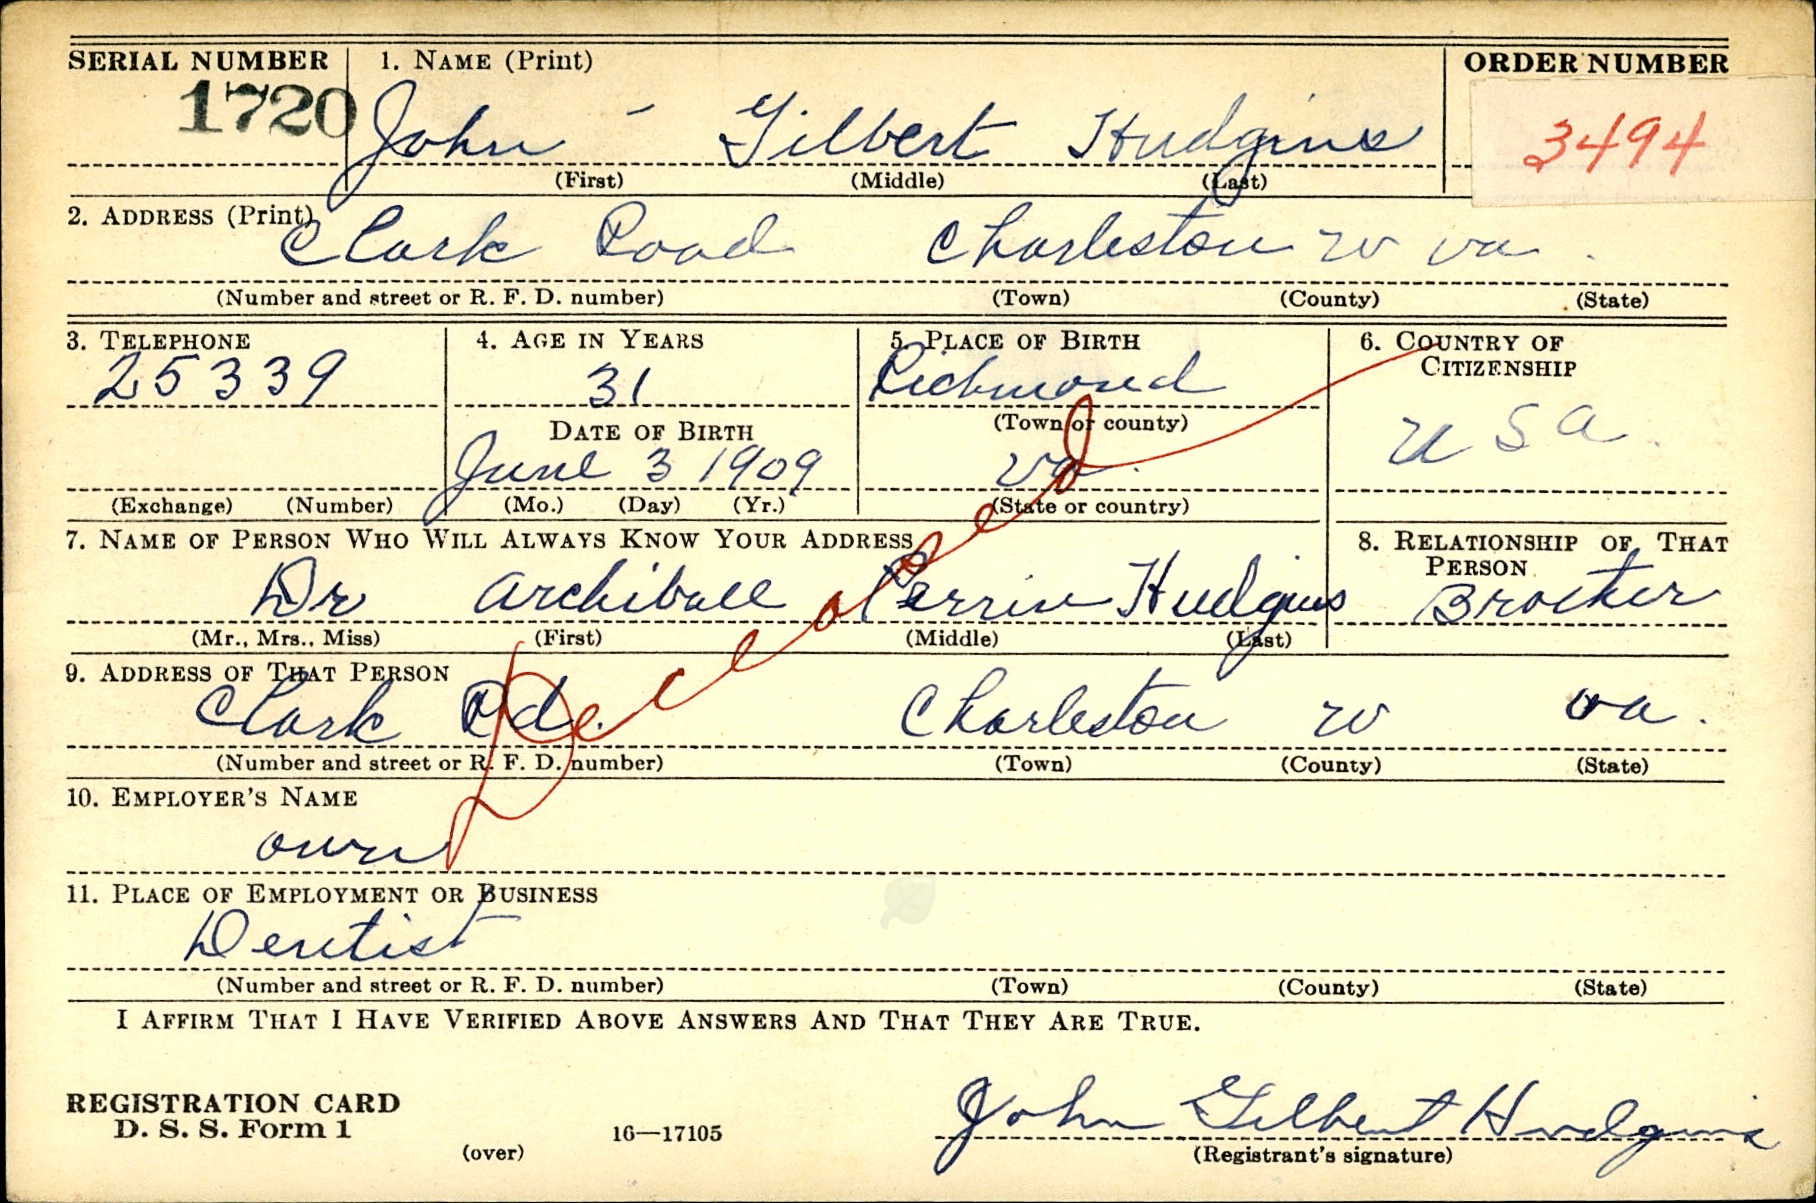 SERIAL NUMBER 1. NAME (Print) ORDER NUMBER
1720 John Gilbert Hudgins 3494
(First) (Middle) (Last)
2. ADDRESS (Print)
Clark Road Charleston W Va.
(Number and street or R. F. D. number) (Town) (County) (State)
3. TELEPHONE 4. AGE IN YEARS 5. PLACE OF BIRTH 6. COUNTRY OF CITIZENSHIP
25339 31 Richmond
DATE OF BIRTH (Town or county)
June 3 1909 Va. U S A.
(Exchange) (Number) (Mo.) (Day) (Yr.) (State or country)
7. NAME OF PERSON WHO WILL ALWAYS KNOW YOUR ADDRESS 8. RELATIONSHIP OF THAT PERSON
Dr Archiball Perrin Hudgins Brother
(Mr., Mrs., Miss) (First) (Middle) (Last)
Deceased
9. ADDRESS OF THAT PERSON
Clark Rd. Charleston W Va.
(Number and street or R. F. D. number) (Town) (County) (State)
10. EMPLOYER'S NAME
own
11. PLACE OF EMPLOYMENT OR BUSINESS
Dentist
(Number and street or R. F. D. number) (Town) (County) (State)
I AFFIRM THAT I HAVE VERIFIED ABOVE ANSWERS AND THAT THEY ARE TRUE.
REGISTRATION CARD
D. S. S. Form 1 16—17105 John Gilbert Hudgins
(over) (Registrant's signature)